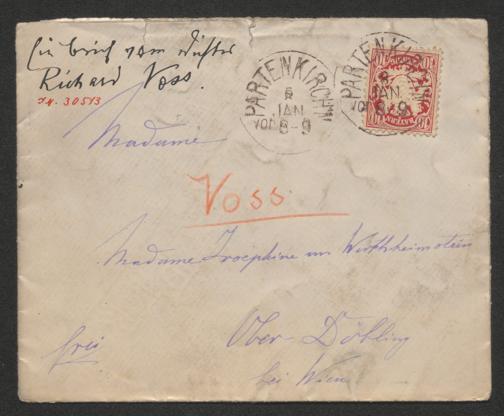 Ein Brief vom Dichter
Richard Voss.
I.N. 30513
PARTENKIRCH'N
5
JAN
VOR 8-9
PARTENKIRCH'N
5
JAN
VOR 8-9
10
Madame
Voss
Madame Josephine von Wertheimstein
Ober-Döbling
bei Wien
frei